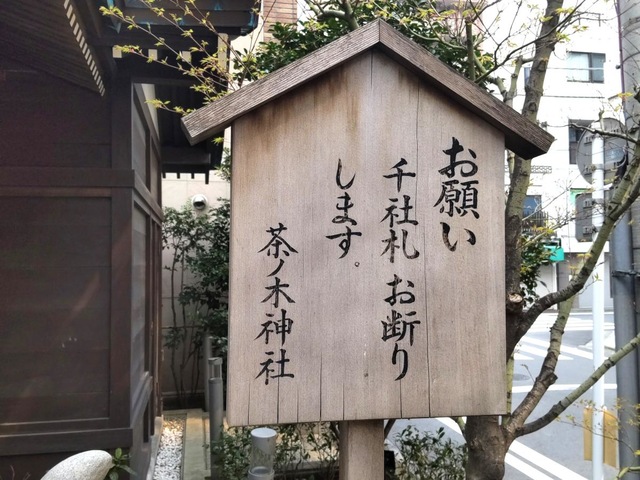 お願い
千社札お断り
します。
茶ノ木神社